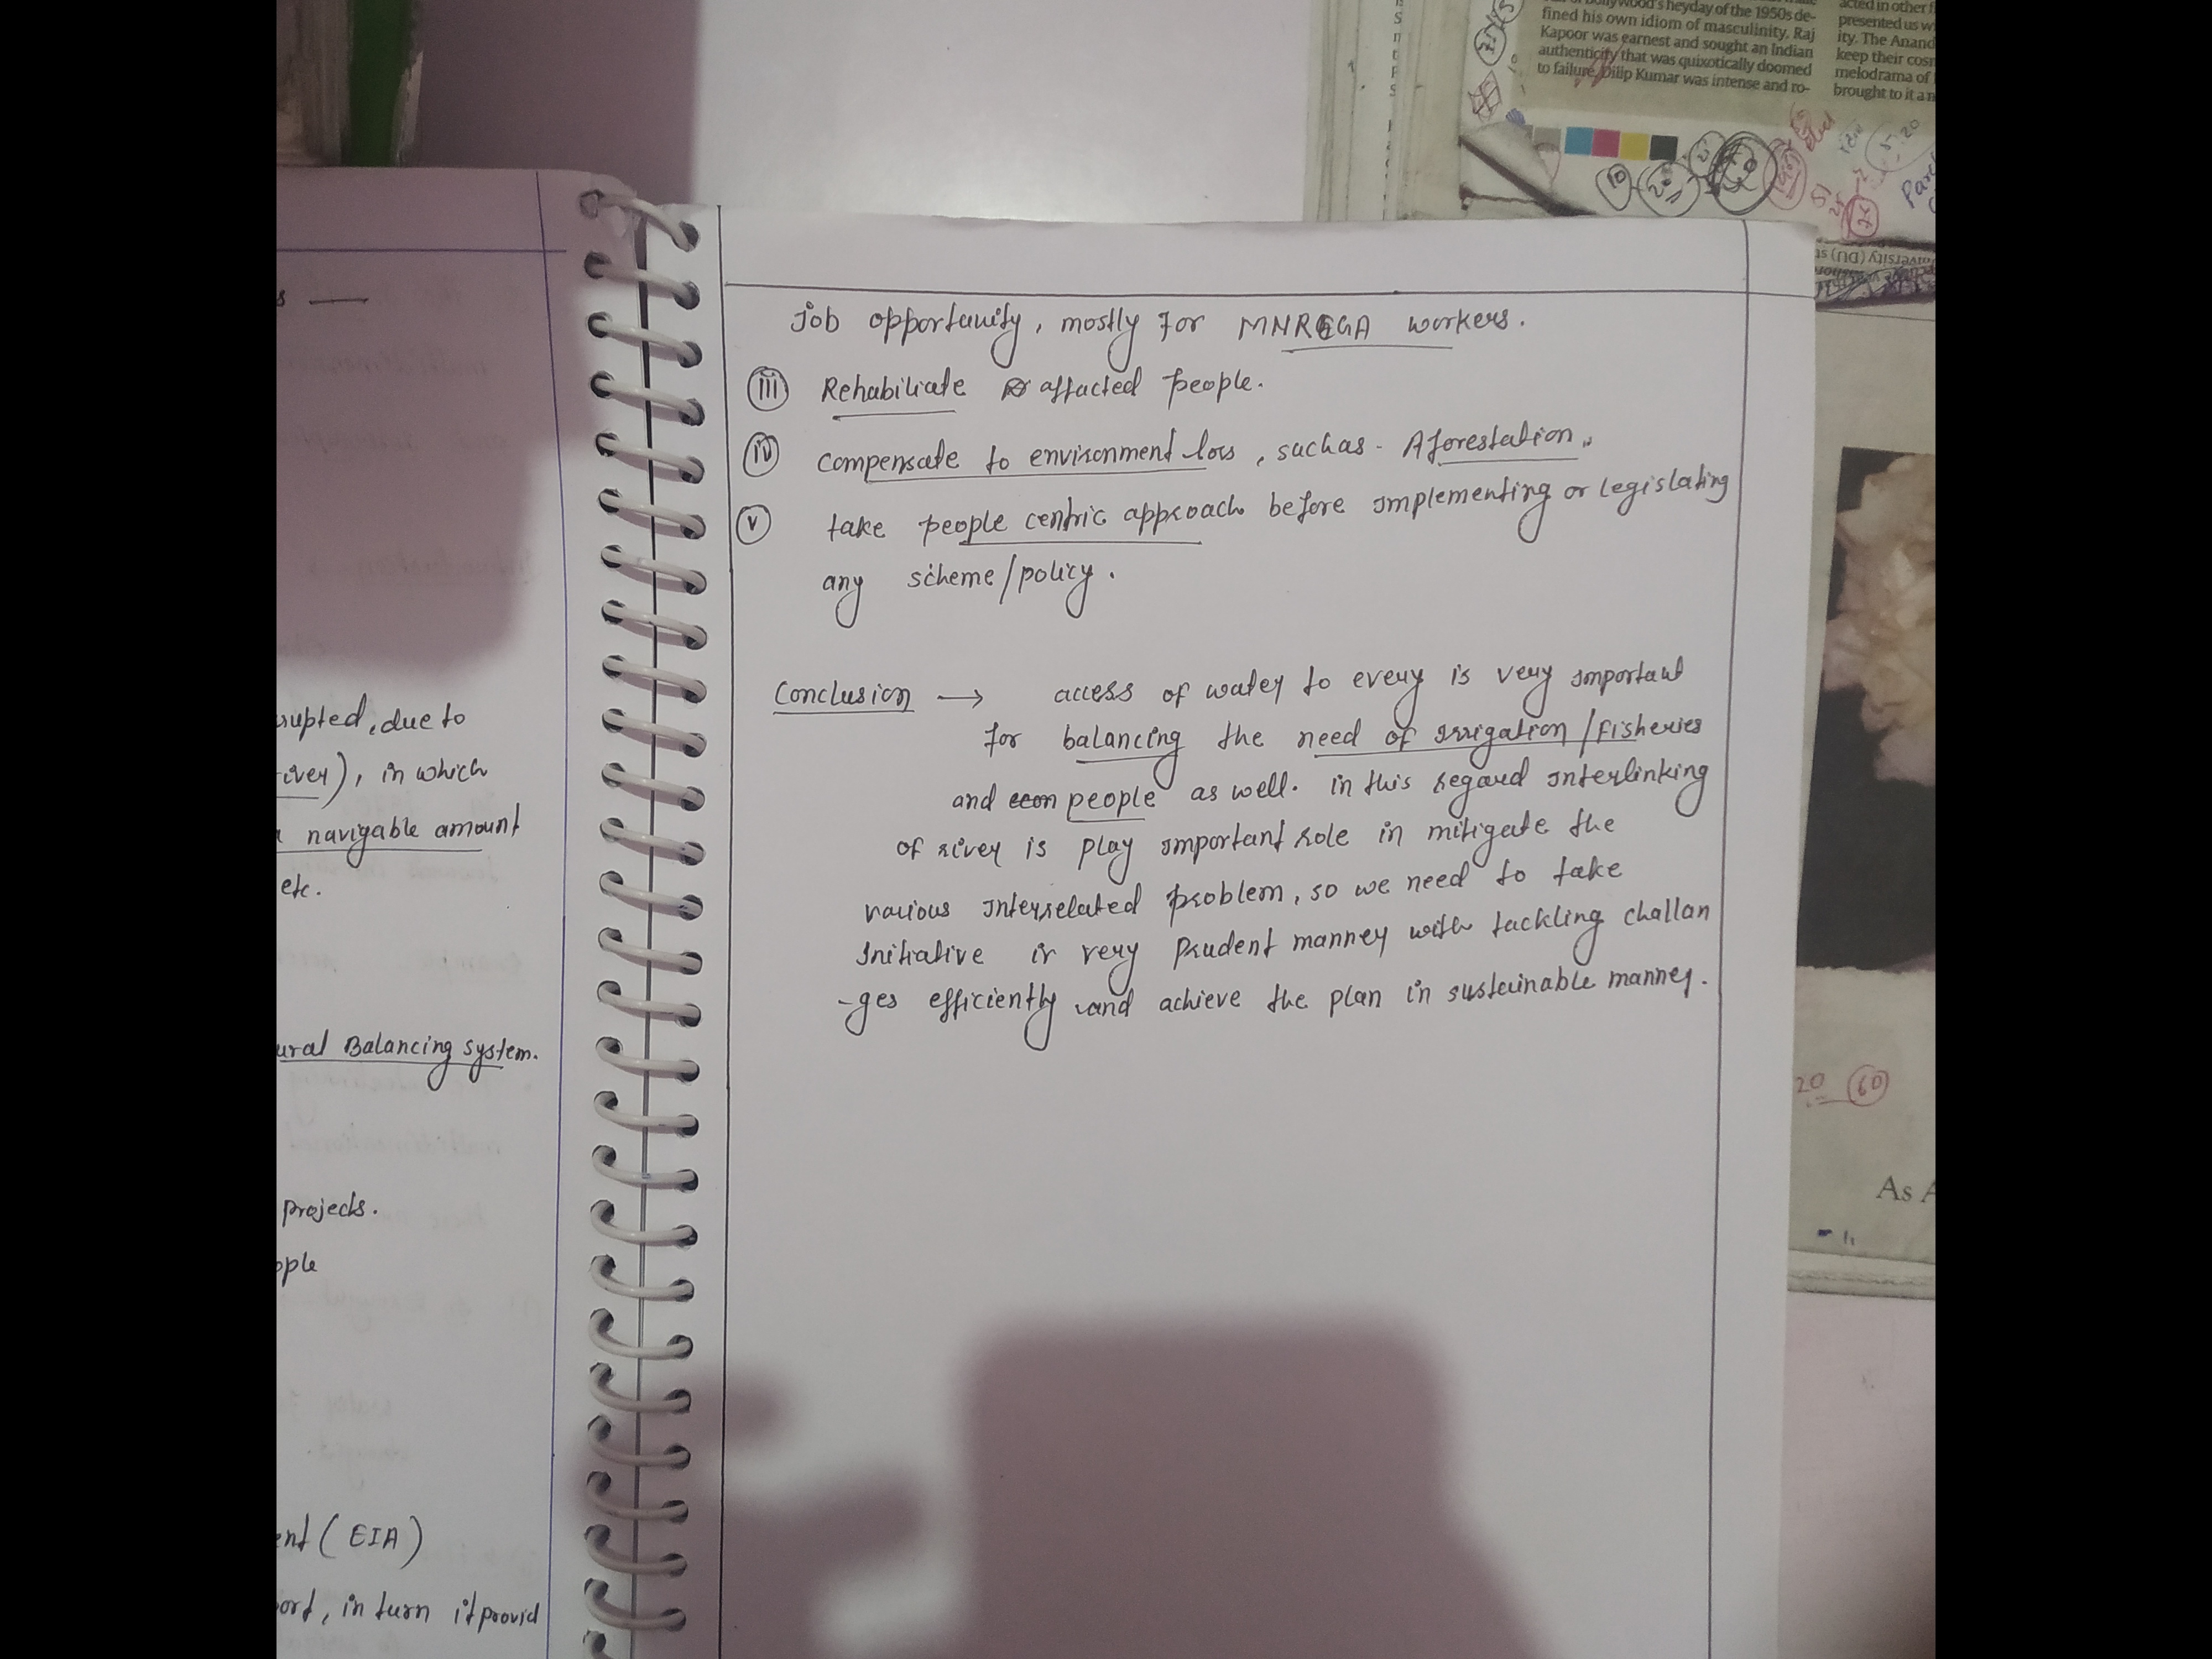 s —
rupted, due to
river), in which
navigable amount
etc.
ural Balancing system.
projects.
ople
ent (EIA)
port, in turn it provid
Job opportunity, mostly for MNREGA workers.
(iii) Rehabiliate affacted people.
(iv) compensate to environment loss, such as - Aforestation.
(v) take people centric approach before implementing or legislating
any scheme/policy.
Conclusion → access of water to every is very important
for balancing the need of irrigation/fisheries
and econ people as well. in this regard interlinking
of river is play important role in mitigate the
various interrelated problem, so we need to take
initiative in very prudent manner with tackling challan
-ges efficiently and achieve the plan in sustainable manner.
ollywood's heyday of the 1950s de-
fined his own idiom of masculinity. Raj
Kapoor was earnest and sought an Indian
authenticity that was quixotically doomed
to failure. Dilip Kumar was intense and ro-
acted in other f
presented us w
ity. The Anand
keep their cosm
melodrama of
brought to it an
10
5.20
niversity (DU) st
20 60
As A